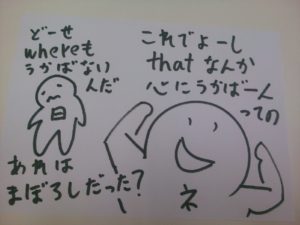 どーせ
whereも
うかばない
んだ
あれは
まぼろしだった?
これでよーし
thatなんか
心にうかばーん
っての
ネ